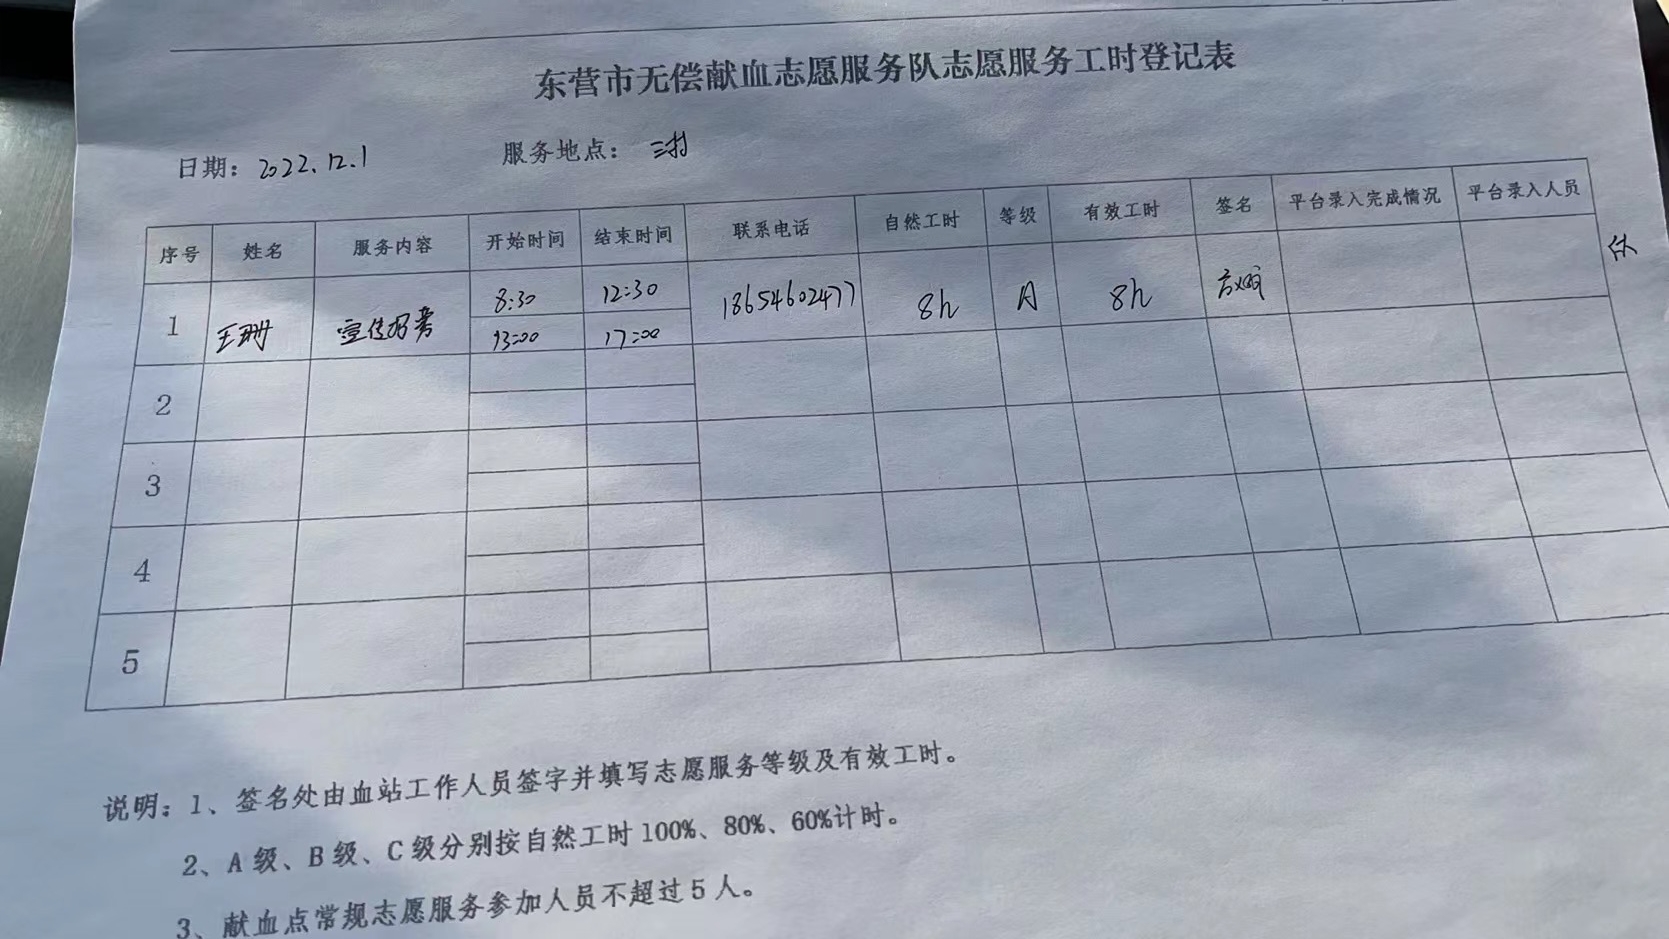 东营市无偿献血志愿服务队志愿服务工时登记表
日期：2022.12.1 服务地点：三村
序号 姓名 服务内容 开始时间 结束时间 联系电话 自然工时 等级 有效工时 签名 平台录入完成情况 平台录入人员
1 王珊 宣传招募 8:30 12:30 18654602477 8h A 8h
13:00 17:00
2
3
4
5
说明：1、签名处由血站工作人员签字并填写志愿服务等级及有效工时。
2、A级、B级、C级分别按自然工时100%、80%、60%计时。
3、献血点常规志愿服务参加人员不超过5人。